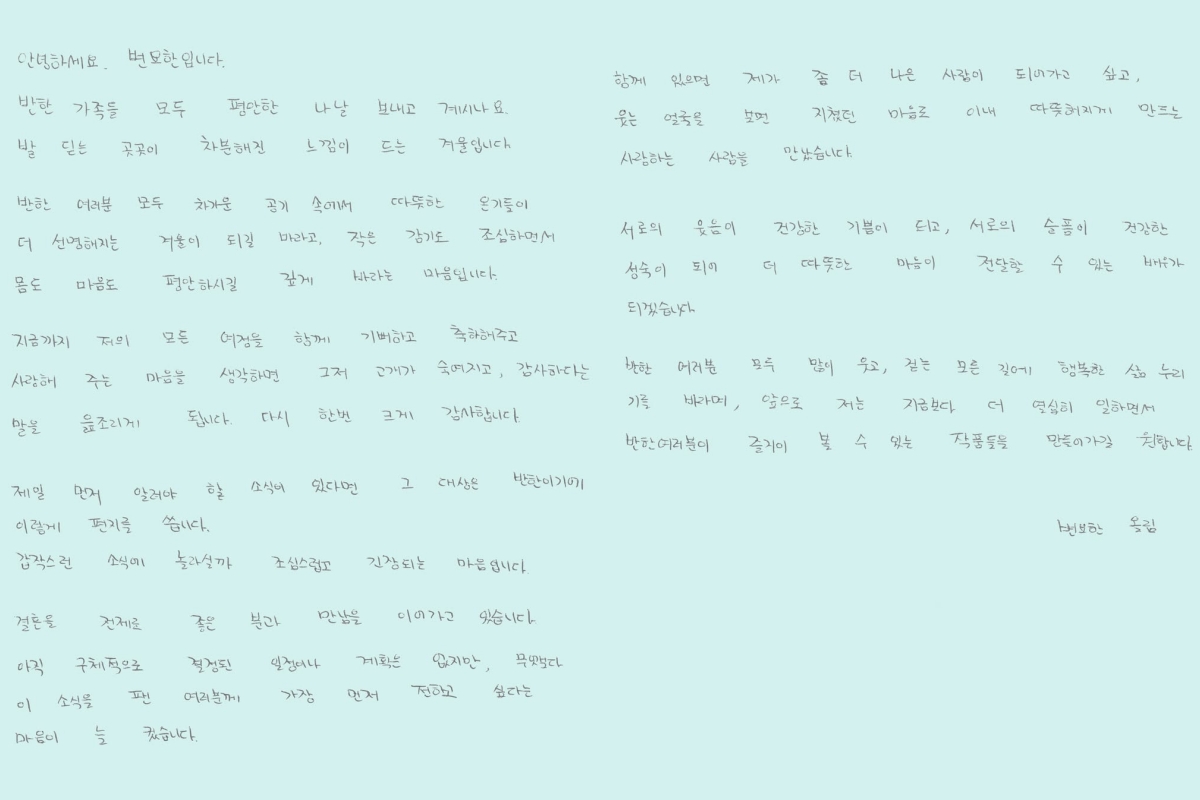 안녕하세요. 변요한입니다.
반한 가족들 모두 평안한 나날 보내고 계시나요.
발 딛는 곳곳이 차분해진 느낌이 드는 겨울입니다.
반한 여러분 모두 차가운 공기 속에서 따뜻한 온기들이
더 선명해지는 겨울이 되길 바라고, 작은 감기도 조심하면서
몸도 마음도 평안하시길 깊게 바라는 마음입니다.
지금까지 저의 모든 여정을 함께 기뻐하고 축하해주고
사랑해 주는 마음을 생각하면 그저 고개가 숙여지고, 감사하다는
말을 읊조리게 됩니다. 다시 한번 크게 감사합니다.
제일 먼저 알려야 할 소식이 있다면 그 대상은 반한이기에
이렇게 편지를 씁니다.
갑작스런 소식에 놀라실까 조심스럽고 긴장되는 마음입니다.
결혼을 전제로 좋은 분과 만남을 이어가고 있습니다.
아직 구체적으로 결정된 일정이나 계획은 없지만, 무엇보다
이 소식을 팬 여러분께 가장 먼저 전하고 싶다는
마음이 늘 컸습니다.
함께 있으면 제가 좀 더 나은 사람이 되어가고 싶고,
웃는 얼굴을 보면 지쳤던 마음로 이내 따뜻해지게 만드는
사랑하는 사람을 만났습니다.
서로의 웃음이 건강한 기쁨이 되고, 서로의 슬픔이 건강한
성숙이 되어 더 따뜻한 마음이 전달할 수 있는 배우가
되겠습니다.
반한 여러분 모두 많이 웃고, 걷는 모든 길에 행복한 삶 누리
기를 바라며, 앞으로 저는 지금보다 더 열심히 일하면서
반한여러분이 즐거이 볼 수 있는 작품들을 만들어가길 원합니다.
변요한 올림